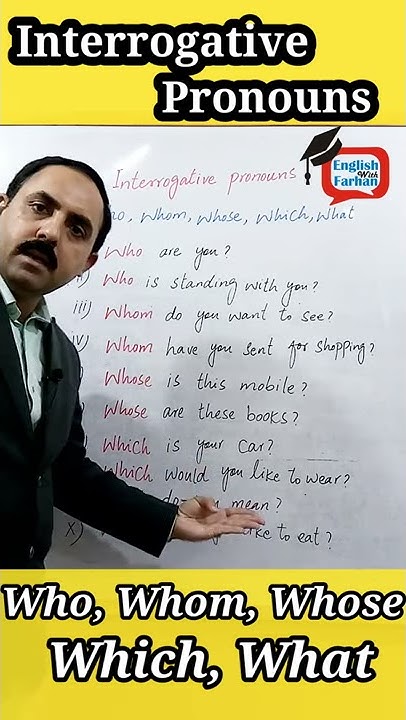 Interrogative
Pronouns
English
With
Farhan
Interrogative pronouns
, Whom, Whose, Which, What
Who are you?
Who is standing with you?
iii) Whom do you want to see?
Whom have you sent for shopping?
Whose is this mobile?
Whose are these books?
Which is your Car?
Which would you like to wear?
mean?
x) like to eat?
Who, Whom, Whose
Which, What